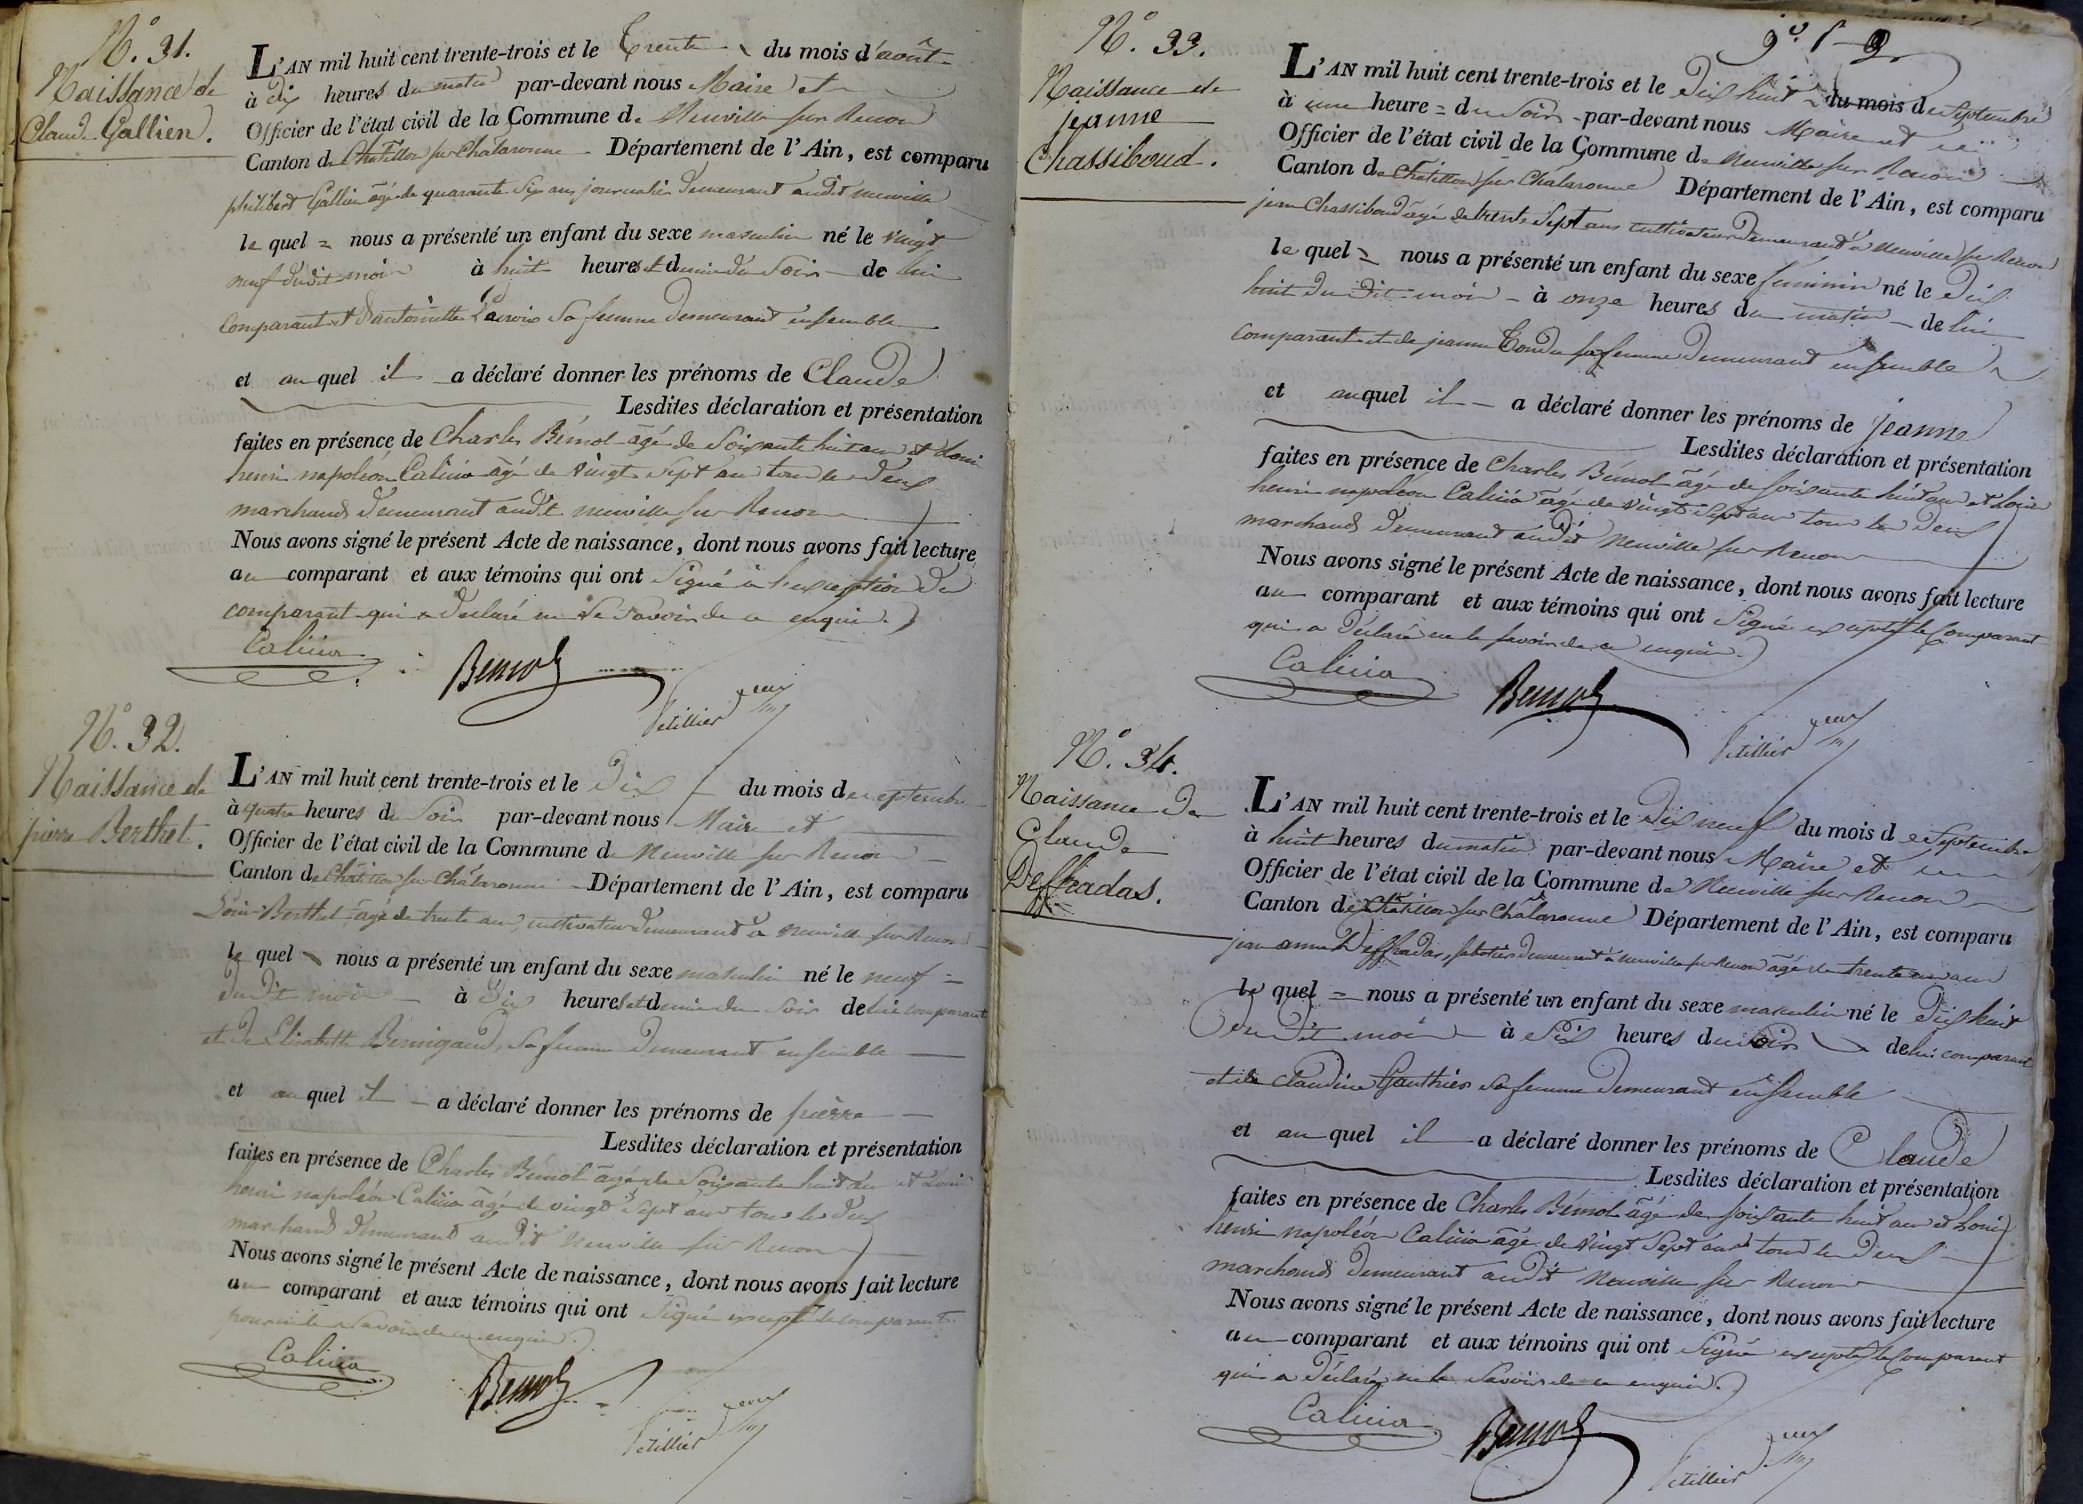 N.° 31.
Naissance de
Claude Gallien.
L'AN mil huit cent trente-trois et le Trente du mois d'août
à dix heures du matin par-devant nous Maire et
Officier de l'état civil de la Commune de Neuville sur Renon
Canton de Chatillon sur Chalaronne Département de l'Ain, est comparu
philibert Gallien âgé de quarante six ans journalier demeurant audit neuville
le quel = nous a présenté un enfant du sexe masculin né le vingt
neuf dudit mois à huit heures et demie du soir de lui
comparant et d'antoinette Lacroix sa femme demeurant ensemble
et au quel il a déclaré donner les prénoms de Claude
Lesdites déclaration et présentation
faites en présence de Charles Bémol âgé de soixante huit ans et Loui
henri napoléon Calicia âgé de vingt sept ans tous les deux
marchands demeurant audit neuville sur Renon
Nous avons signé le présent Acte de naissance, dont nous avons fait lecture
au comparant et aux témoins qui ont signé à l'exception du
comparant qui a déclaré ne le savoir de ce enquis.
Calicia
Bemol
Vetillier
N.° 32.
Naissance de
pierre Berthet.
L'AN mil huit cent trente-trois et le Dix du mois de septembre
à quatre heures du soir par-devant nous Maire et
Officier de l'état civil de la Commune de Neuville sur Renon
Canton de Chatillon sur Chalaronne Département de l'Ain, est comparu
Louis Berthet âgé de trente ans, cultivateur demeurant à neuville sur Renon
le quel nous a présenté un enfant du sexe masculin né le neuf =
dudit mois à dix heures et demie du soir de lui comparant
et de Elisabeth Bernigaud, sa femme demeurant ensemble
et au quel il a déclaré donner les prénoms de pierre
Lesdites déclaration et présentation
faites en présence de Charles Bémol âgé de soixante huit ans et Louis
henri napoléon Calicia âgé de vingt sept ans tous les deux
marchands demeurant audit Neuville sur Renon
Nous avons signé le présent Acte de naissance, dont nous avons fait lecture
au comparant et aux témoins qui ont signé excepté le comparant
pour ne le savoir de ce enquis.
Calicia
Bemol
Vetillier
N.° 33.
Naissance de
jeanne
Chassiboud.
L'AN mil huit cent trente-trois et le Dix huit du mois de Septembre
à une heure = du soir par-devant nous Maire et
Officier de l'état civil de la Commune de Neuville sur Renon
Canton de Chatillon sur Chalaronne Département de l'Ain, est comparu
jean Chassiboud âgé de trente sept ans cultivateur demeurant à Neuville sur Renon
le quel = nous a présenté un enfant du sexe féminin né le dix
huit du dit mois à onze heures du matin de lui
comparant et de jeanne Tondu sa femme demeurant ensemble
et auquel il a déclaré donner les prénoms de jeanne
Lesdites déclaration et présentation
faites en présence de Charles Bémol âgé de soixante huit ans et Louis
henri napoléon Calicia âgé de vingt sept ans tous les deux
marchands demeurant audit Neuville sur Renon
Nous avons signé le présent Acte de naissance, dont nous avons fait lecture
au comparant et aux témoins qui ont signé excepté le comparant
qui a déclaré ne le savoir de ce enquis.
Calicia
Bemol
Vetillier
N.° 34.
Naissance de
Claude
Deffradas.
L'AN mil huit cent trente-trois et le Dix neuf du mois de Septembre
à huit heures du matin par-devant nous Maire et
Officier de l'état civil de la Commune de Neuville sur Renon
Canton de Chatillon sur Chalaronne Département de l'Ain, est comparu
jean Deffradas, sabotier demeurant à neuville sur Renon âgé de trente ans
le quel = nous a présenté un enfant du sexe masculin né le dix huit
du dit mois à six heures du soir de lui comparant
et de claudine Gauthier sa femme demeurant ensemble
et au quel il a déclaré donner les prénoms de Claude
Lesdites déclaration et présentation
faites en présence de Charles Bémol âgé de soixante huit ans et Loui
henri napoléon Calicia âgé de vingt sept ans tous les deux
marchands demeurant audit Neuville sur Renon
Nous avons signé le présent Acte de naissance, dont nous avons fait lecture
au comparant et aux témoins qui ont signé excepté le comparant
qui a déclaré ne le savoir de ce enquis.
Calicia
Bemol
Vetillier